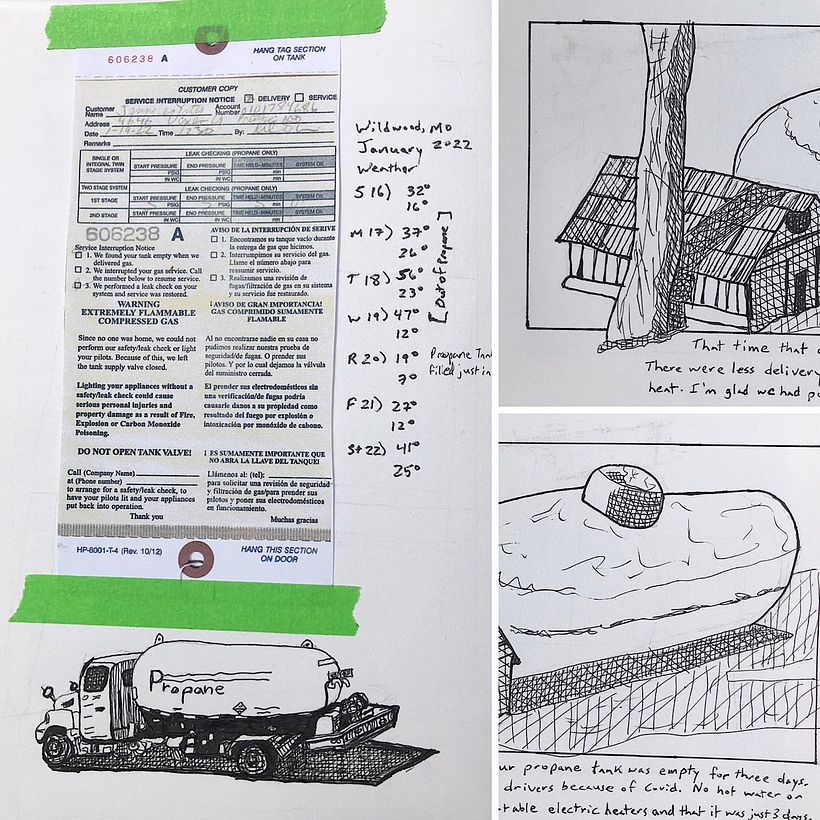 606238 A
HANG TAG SECTION
ON TANK
CUSTOMER COPY
SERVICE INTERRUPTION NOTICE DELIVERY SERVICE
Customer
Name
Account
Number
Address
Date 1-19-22 Time 1230 By:
Remarks
SINGLE OR
INTEGRAL TWIN
STAGE SYSTEM
LEAK CHECKING (PROPANE ONLY)
START PRESSURE END PRESSURE TIME HELD-MINUTES SYSTEM OK
PSIG PSIG min
IN WC IN WC
TWO STAGE SYSTEM LEAK CHECKING (PROPANE ONLY)
1ST STAGE START PRESSURE END PRESSURE TIME HELD-MINUTES SYSTEM OK
PSIG PSIG min
2ND STAGE START PRESSURE END PRESSURE TIME HELD-MINUTES SYSTEM OK
IN WC IN WC min
606238 A
Service Interruption Notice
1. We found your tank empty when we
delivered gas.
2. We interrupted your gas service. Call
the number below to resume service.
3. We performed a leak check on your
system and service was restored.
WARNING
EXTREMELY FLAMMABLE
COMPRESSED GAS
Since no one was home, we could not
perform our safety/leak check or light
your pilots. Because of this, we left
the tank supply valve closed.
Lighting your appliances without a
safety/leak check could cause
serious personal injuries and
property damage as a result of Fire,
Explosion or Carbon Monoxide
Poisoning.
DO NOT OPEN TANK VALVE!
Call (Company Name)
at (Phone number)
to arrange for a safety/leak check, to
have your pilots lit and your appliances
put back into operation.
Thank you
AVISO DE LA INTERRUPCIÓN DE SERIVE
1. Encontramos su tanque vacío durante
la entrega de gas que hicimos.
2. Interrumpimos su servicio del gas.
Llame el número abajo para
reasumir servicio.
3. Realizamos una revisión de
fugas/filtración de gas en su sistema
y su servicio fue restaurado.
¡ AVISO DE GRAN IMPORTANCIA!
GAS COMPRIMIDO SUMAMENTE
FLAMABLE
Al no encontrarse nadie en su casa no
pudimos realizar nuestra prueba de
seguridad/de fugas. O prender sus
pilotos. Y por lo cual dejamos la válvula
del suministro cerrada.
El prender sus electrodomésticos sin
una verificación/de fugas podría
causarle danos a su propiedad como
resultado del fuego por explosión o
intoxicación por monóxido de carbono.
¡ ES SUMAMENTE IMPORTANTE QUE
NO ABRA LA LLAVE DEL TANQUE!
Llámenos al: (tel):
para solicitar una revisión de seguridad
y filtración de gas/para prender sus
pilotos y poner sus electrodomésticos
en funcionamiento.
Muchas gracias
HP-8001-T-4 (Rev. 10/12)
HANG THIS SECTION
ON DOOR
Wildwood, Mo
January 2022
Weather
S 16) 32°
16°
M 17) 37°
26°
T 18) 56°
23°
W 19) 47°
12°
[Out of Propane]
R 20) 19°
7°
Propane Tank
filled just in
F 21) 27°
12°
St 22) 41°
25°
Propane
That time that o
There were less delivery
heat. I'm glad we had po
ur propane tank was empty for three days.
drivers because of Covid. No hot water or
rtable electric heaters and that it was just 3 days.